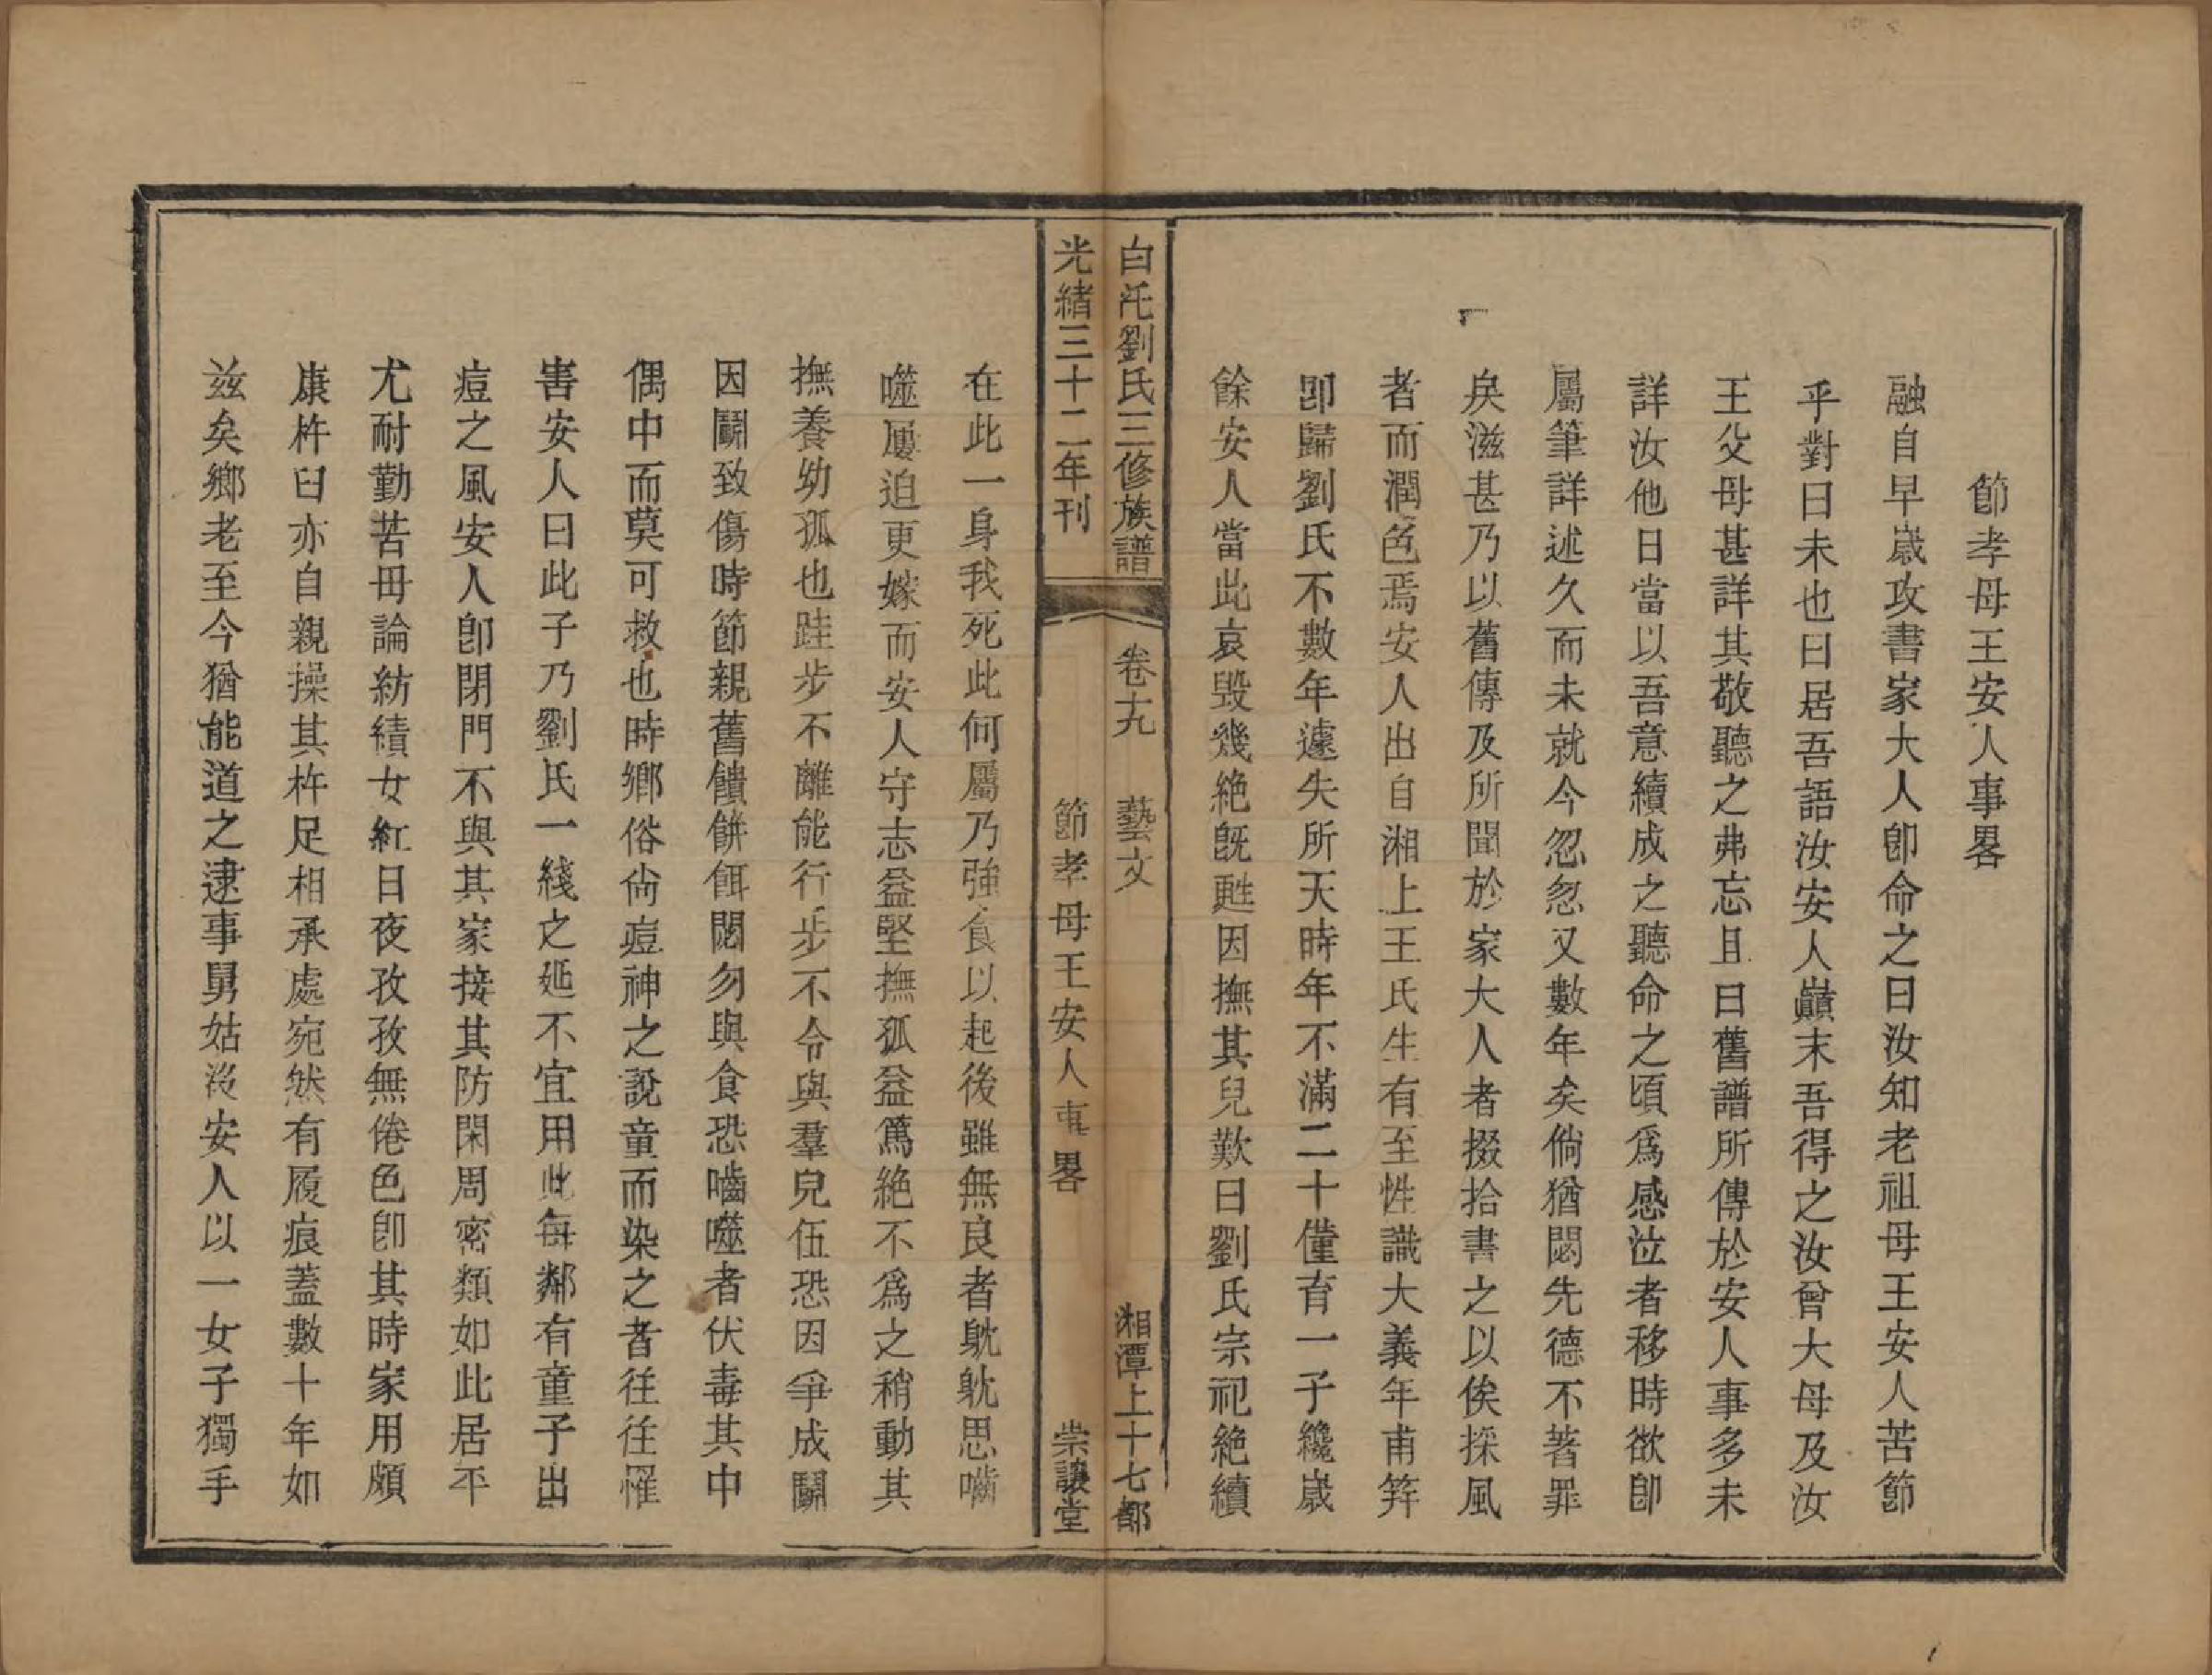 節孝母王安人事畧
融自早嵗攻書家大人卽命之曰汝知老祖母王安人苦節
乎對曰未也曰居吾語汝安人巔末吾得之汝曾大母及汝
王父母甚詳其敬聽之弗忘且曰舊譜所傳於安人事多未
詳汝他日當以吾意續成之聽命之頃爲感泣者移時欲卽
屬筆詳述久而未就今忽忽又數年矣倘猶閟先德不著罪
矣滋甚乃以舊傳及所聞於家大人者掇拾書之以俟採風
者而潤色焉安人出自湘上王氏生有至性識大義年甫笄
卽歸劉氏不數年遽失所天時年不滿二十僅育一子纔嵗
餘安人當此哀毀幾絶旣甦因撫其兒歎曰劉氏宗祀絶續
白汑劉氏三修族譜
卷十九
藝文
湘潭上十七都
光緒三十二年刊
節孝母王安人事畧
崇讓堂
在此一身我死此何屬乃強食以起後雖無良者躭躭思嚙
噬屢迫更嫁而安人守志益堅撫孤益篤絶不爲之稍動其
撫養幼孤也跬步不離能行步不令與羣兒伍恐因爭成鬬
因鬬致傷時節親舊饋餅餌閟勿與食恐嚙噬者伏毒其中
偶中而莫可救也時鄉俗尙痘神之說童而染之者往往罹
害安人曰此子乃劉氏一綫之延不宜用此每鄰有童子出
痘之風安人卽閉門不與其家接其防閑周密類如此居平
尤耐勤苦毋論紡績女紅日夜孜孜無倦色卽其時家用頗
康杵臼亦自親操其杵足相承處宛然有履痕蓋數十年如
兹矣鄉老至今猶能道之逮事舅姑沒安人以一女子獨手